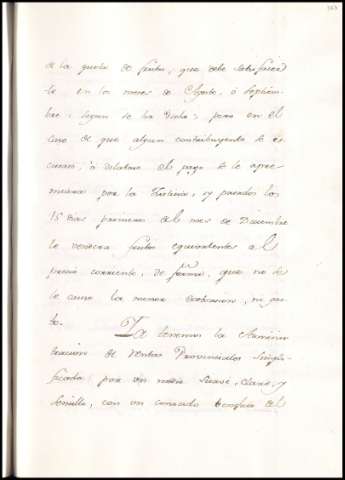 de la quota de frutos, que debe satisfacer
le en los meses de Agosto, ó Septiem
bre, segun se ha dicho; pero en el
caso de que algun contribuyente se es
cusare, ó dilatare el pago se le apre
miará por la Justicia, y pasados los
15 dias primeros del mes de Diciembre
le venderá frutos equivalentes al
precio corriente, de forma, que no se
le cause la menor extorsion, ni gas
to.
Ya tenemos la Adminis
tracion de Rentas Provinciales simpli
ficada por un medio suave, claro, y
sencillo, con un conocido beneficio del